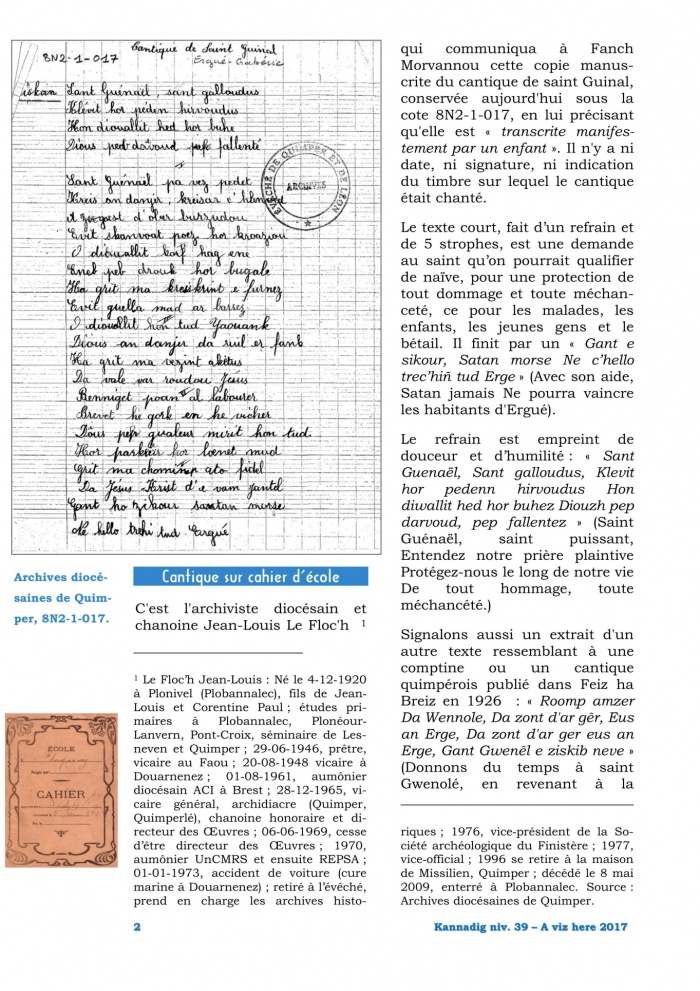 8N2-1-017
Cantique de Saint Guinal
Ergué-Gabéric
diskan Sant Guénaël, sant galloudus
Klévit hor peden hirvoudus
Hon diouallit hed hor buhe
Dious pep darvoud pep fallenté
Sant Guénaël pa vez pedet
Kreis an danjer, kreisar c'hlenved
d'ober burzudou
Evit skanvaat poez hor kroaziou
O diouallit korf hag ene
Eneb peb drouk hor bugale
Ha grit ma kreskint e furnez
Evit guella mad ar barrez
O diouallit hon tud Yaouank
Dious an danjer da ruil er fank
Ha grit ma vezint akétus
Da vale var roudou Jésus
Benniget poan al labourer
Brevet he gorf en he vicher
Dous pep gvaleur mirit hon tud
Hor parkeier hor loenet mud
Grit ma chomimp ato fidel
Da Jésus-Krist d'e vam santel
Gant ho zikour satan morse
Ne hello trehi tud Ergué
EVECHÉ DE QUIMPER ET DE LÉON
ARCHIVES
Archives diocé-
saines de Quim-
per, 8N2-1-017.
ÉCOLE
CAHIER
Cantique sur cahier d'école
C'est l'archiviste diocésain et
chanoine Jean-Louis Le Floc'h 1
1 Le Floc'h Jean-Louis : Né le 4-12-1920
à Plonivel (Plobannalec), fils de Jean-
Louis et Corentine Paul ; études pri-
maires à Plobannalec, Plonéour-
Lanvern, Pont-Croix, séminaire de Les-
neven et Quimper ; 29-06-1946, prêtre,
vicaire au Faou ; 20-08-1948 vicaire à
Douarnenez ; 01-08-1961, aumônier
diocésain ACI à Brest ; 28-12-1965, vi-
caire général, archidiacre (Quimper,
Quimperlé), chanoine honoraire et di-
recteur des Œuvres ; 06-06-1969, cesse
d'être directeur des Œuvres ; 1970,
aumônier UnCMRS et ensuite REPSA ;
01-01-1973, accident de voiture (cure
marine à Douarnenez) ; retiré à l'évêché,
prend en charge les archives histo-
qui communiqua à Fanch
Morvannou cette copie manus-
crite du cantique de saint Guinal,
conservée aujourd'hui sous la
cote 8N2-1-017, en lui précisant
qu'elle est « transcrite manifes-
tement par un enfant ». Il n'y a ni
date, ni signature, ni indication
du timbre sur lequel le cantique
était chanté.
Le texte court, fait d'un refrain et
de 5 strophes, est une demande
au saint qu'on pourrait qualifier
de naïve, pour une protection de
tout dommage et toute méchan-
ceté, ce pour les malades, les
enfants, les jeunes gens et le
bétail. Il finit par un « Gant e
sikour, Satan morse Ne c'hello
trec'hiñ tud Erge » (Avec son aide,
Satan jamais Ne pourra vaincre
les habitants d'Ergué).
Le refrain est empreint de
douceur et d'humilité : « Sant
Guenaël, Sant galloudus, Klevit
hor pedenn hirvoudus Hon
diwallit hed hor buhez Diouzh pep
darvoud, pep fallentez » (Saint
Guénaël, saint puissant,
Entendez notre prière plaintive
Protégez-nous le long de notre vie
De tout hommage, toute
méchanceté.)
Signalons aussi un extrait d'un
autre texte ressemblant à une
comptine ou un cantique
quimpérois publié dans Feiz ha
Breiz en 1926 : « Roomp amzer
Da Wennole, Da zont d'ar gêr, Eus
an Erge, Da zont d'ar ger eus an
Erge, Gant Gwenêl e ziskib neve »
(Donnons du temps à saint
Gwenolé, en revenant à la
riques ; 1976, vice-président de la So-
ciété archéologique du Finistère ; 1977,
vice-official ; 1996 se retire à la maison
de Missilien, Quimper ; décédé le 8 mai
2009, enterré à Plobannalec. Source :
Archives diocésaines de Quimper.
2
Kannadig niv. 39 – A viz here 2017